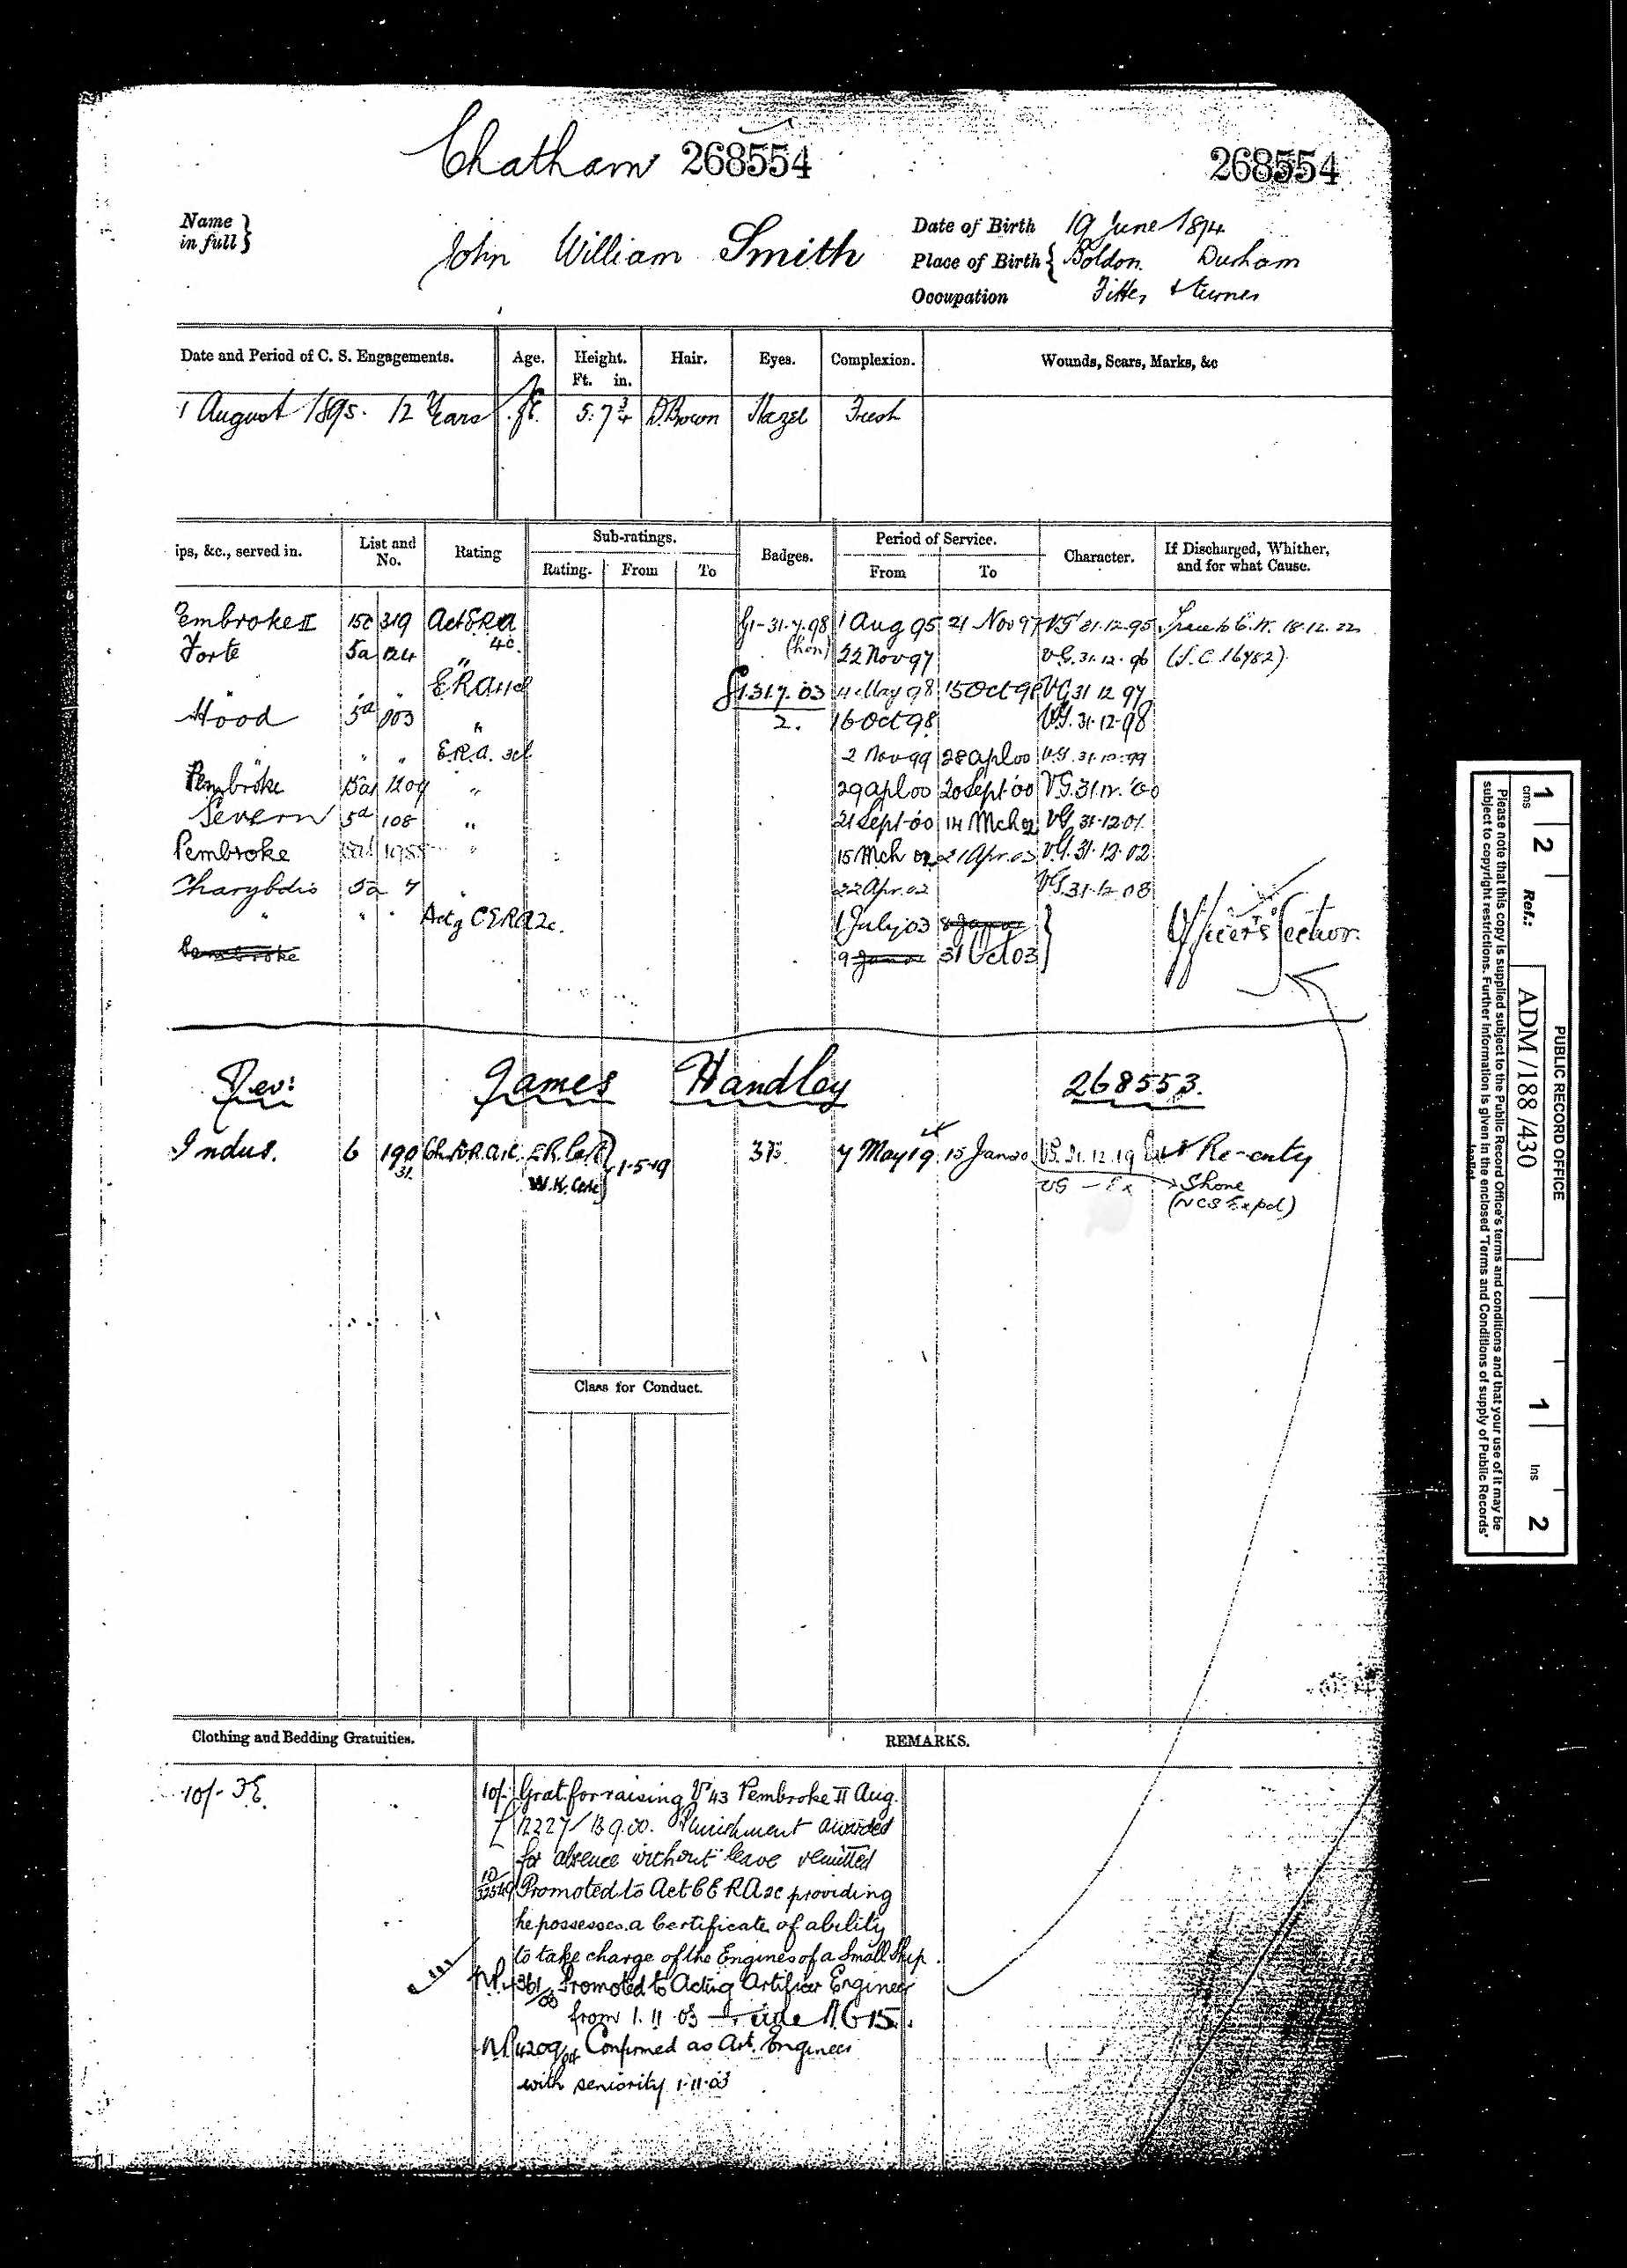 Chatham 268554 268554
Name in full } John William Smith
Date of Birth 19 June 1874
Place of Birth { Boldon Durham
Occupation Fitter & turner
Date and Period of C. S. Engagements. Age. Height. Ft. in. Hair. Eyes. Complexion. Wounds, Scars, Marks, &c
1 August 1895. 12 Years 5. 7 3/4 D. Brown Hazel Fresh
ips, &c., served in. List and No. Rating Sub-ratings. Rating. From To Badges. Period of Service. From To Character. If Discharged, Whither, and for what Cause.
embroke II 15c 319 Act E R A 4c. G1-31.7.98 (hon) 1 Aug 95 21 Nov 97 VG 31.12.95 18.12.22
Forte 5a 124 " 22 Nov 97 V.G. 31.12.96 (S.C. 16482)
" " " E R A 4 cl G 1.31.7.03 4 May 98 15 Oct 98 VG 31 12 97
Hood 5a 903 " 2. 16 Oct 98 V.G. 31-12-98
" " " E.R.A. 3cl 2 Nov 99 28 Apl 00 V.G. 31.12.99
Pembroke 15a1 1209 " 29 Apl 00 20 Sept 00 V.G. 31.12.00
Severn 5a 108 " 21 Sept 00 14 Mch 02 VG 31-12-01.
Pembroke 15a1 1955 " 15 Mch 02 21 Apr. 02 V.G. 31-12-02
Charybdis 5a 7 " 22 Apr. 02 VG 31-12-03
" " " Actg C E R A 2c. 1 July 03 8
Pembroke 9 31 Oct 03 } Officer's Section.
Dev: James Handley 268553.
Indus. 6 190 31. Ch. E.R.A. 1c. E.R. Certe W.K. Certe } 1-5-19 3B. 7 May 19 15 Jan 20 VG. 31.12.19 Re-enty
VG - Ex Shore
(NCS Expd)
Class for Conduct.
Clothing and Bedding Gratuities. REMARKS.
10/- 3E. 10/- Grat. for raising Pembroke II Aug.
12227/B 900. Punishment awarded
for absence without leave remitted
Promoted to Act C E R A 2c providing
he possesses a Certificate of ability
to take charge of the Engines of a Small Ship.
N.P. 4361/03 Promoted to Acting Artificer Engineer
from 1.11.03
N.P. 4209/04 Confirmed as Art. Engineer
with seniority 1.11.03
PUBLIC RECORD OFFICE
1 cms 2 Ref.: ADM/188/430 1 Ins 2
Please note that this copy is supplied subject to the Public Record Office's terms and conditions and that your use of it may be
subject to copyright restrictions. Further information is given in the enclosed 'Terms and Conditions of supply of Public Records'
leaflet